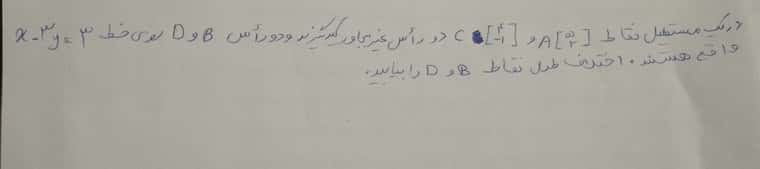 در یک مستطیل نقاط A[۵ ۲] و C[۴ -۱] دو رأس غیر مجاور یکدیگرند و دو رأس B و D روی خط x-۳y=۳
واقع هستند. اختلاف طول نقاط B و D را بیابید.